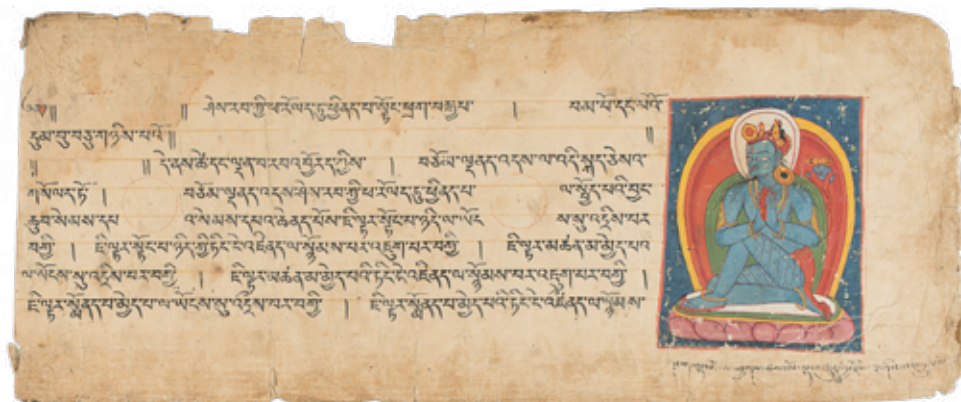 ༄༅།། །། ཤེས་རབ་ཀྱི་ཕ་རོལད་ཏུ་ཕྱིནད་པ་སྟོང་ཕྲག་བརྒྱྀཔ་ | བམ་པོ་དང་པོའོ
དུམ་བུ་བཅུ་གཉིས་པའོ།། །།
།། །། དེ་ནས་ཚེ་དང་ལྡན་བ་རབ་འབྱོརད་ཀྱིས་ | བཅོམ་ལྡནད་འདས་ལ་འདི་སྐད་ཅེས་
གསོལད་ཏོ | བཅོམ་ལྡནད་འདས་ཤེས་རབ་ཀྱི་ཕ་རོལད་ཏུ་ཕྱིནད་པ་ ལ་སྤྱོད་པའི་བྱང་
ཆུབ་སེམས་དཔ འ་སེམས་དཔའ་ཆེནད་པོས་ཇི་ལྟར་སྟོང་པ་ཉིད་ལ་ཡོང ས་སུ་འདྲིས་པར
བགྱི | ཇི་ལྟར་སྟོང་པ་ཉིད་ཀྱི་ཏིང་ངེ་འཛིནད་ལ་སྙོམས་པར་འཇུག་པར་བགྱི | ཇི་ལྟར་མཚན་མ་མྱེད་པའ
ལ་ཡོངས་སུ་འདྲིས་པར་བགྱི | ཇི་ལྟར་མཚན་མ་མྱེད་པའི་ཏིང་ངེ་འཛིནད་ལ་སྙོམས་པར་འཇུག་པར་བགྱི |
ཇི་ལྟར་སྨོནད་པ་མྱེད་པ་ལ་ཡོངས་སུ་འདྲིས་པར་བགྱི | ཇི་ལྟར་སྨོནད་པ་མྱེད་པའི་ཏིང་ངེ་འཛིནད་ལ་སྙོམས་